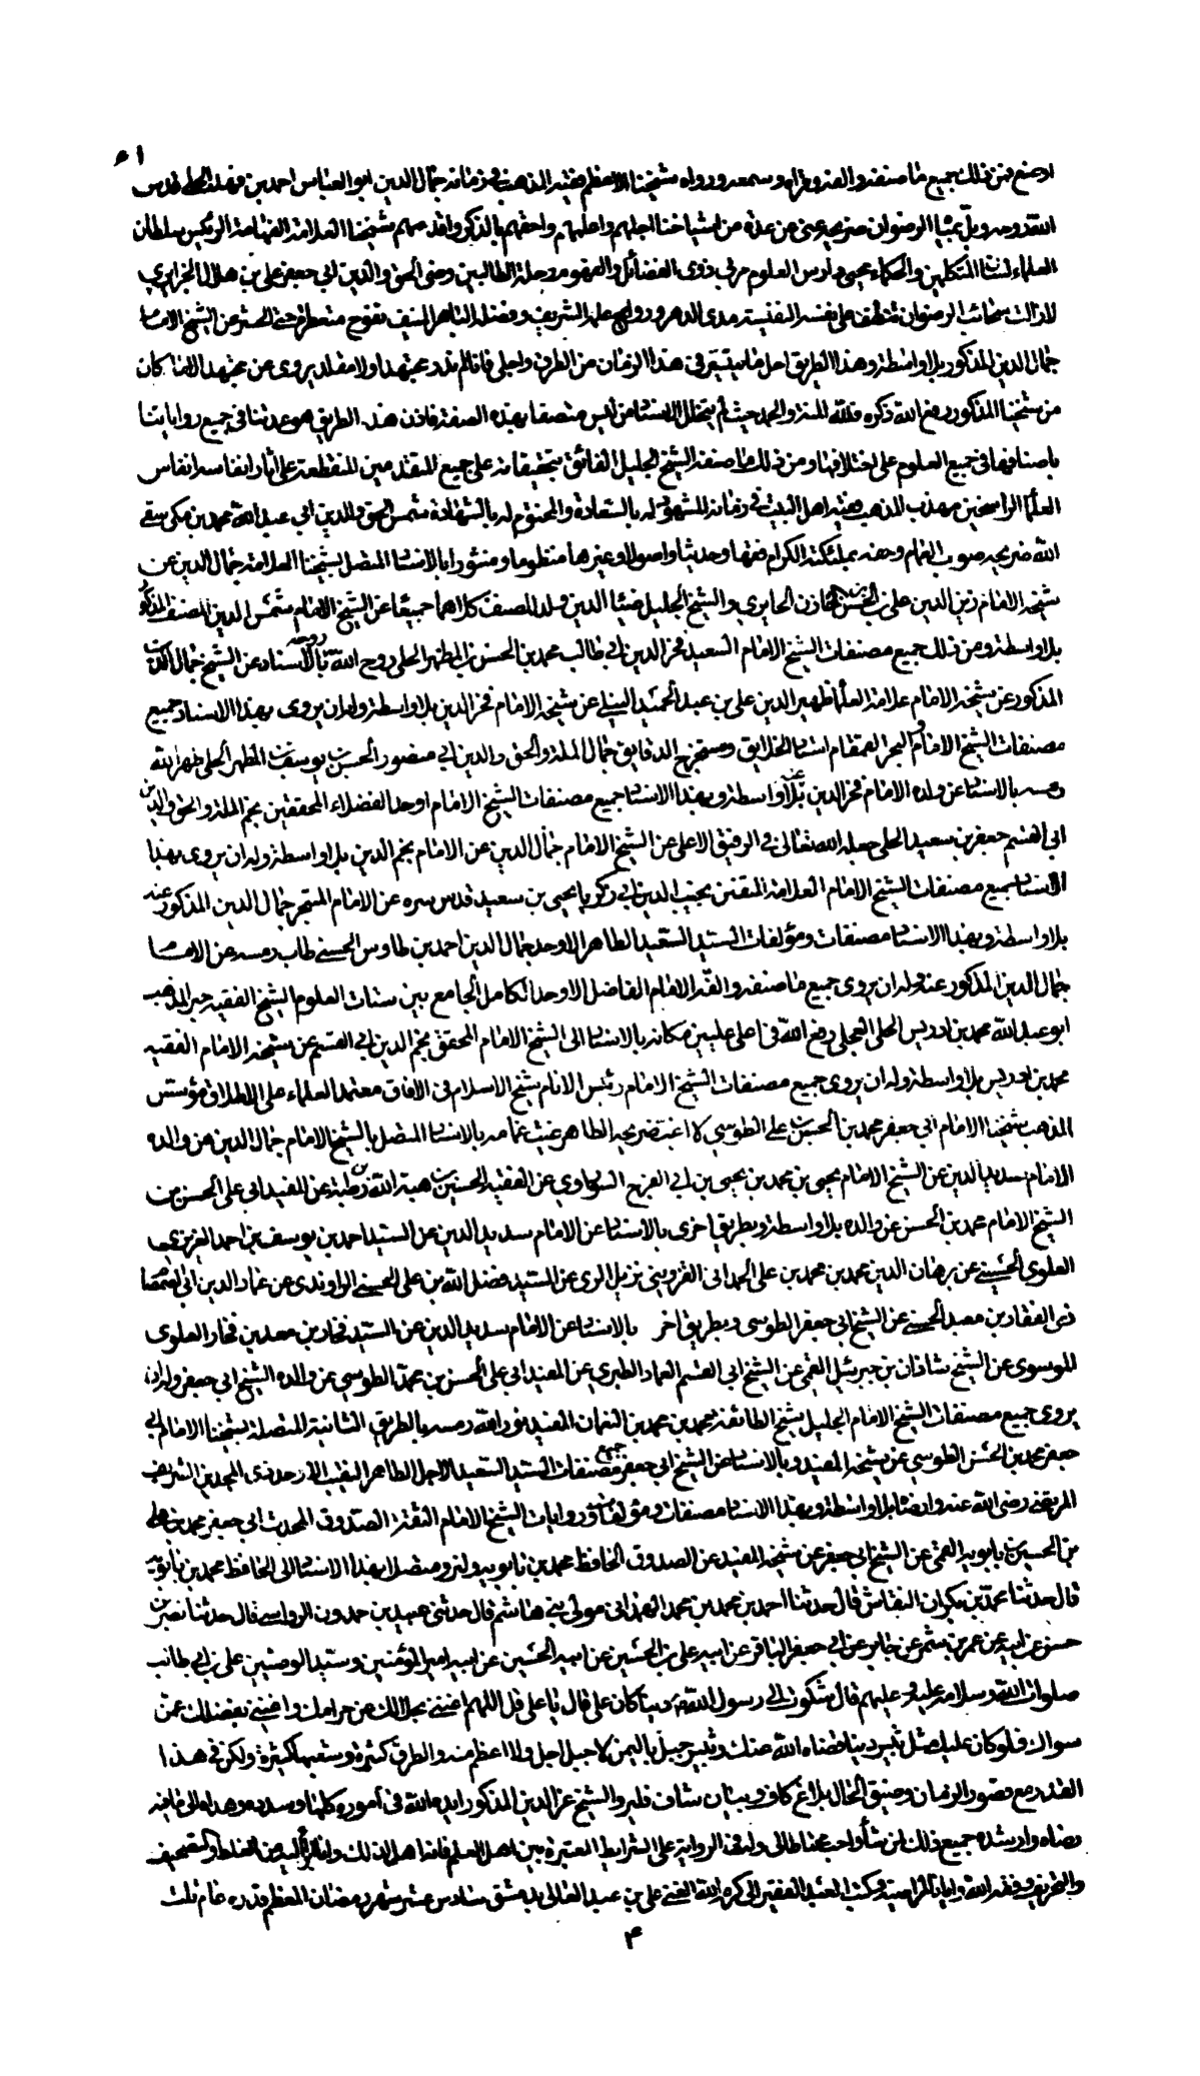 او صنع فمن ذلك جميع ما صنفه والفه وقراه وسمعه ورواه شيخنا الاعظم فقيه المذهب في زمانه جمال الدين ابو العباس احمد بن فهد الحلى قدس
الله روحه وبل بمياه الرضوان ضريحه عنى عن عدة من اشياخنا اجلهم واعلمهم واحقهم بالذكر واقدمهم شيخنا العلامة الفهامة الرئيس سلطان
العلماء لسان المتكلمين والحكماء محيى مدارس العلوم مربى ذوى الفضائل والفهوم رحلة الطالبين رضى الحق والدين ابى جعفر على بن هلال الجزايرى
لازالت سحائب الرضوان تنطف على نفسه النفيسة مدى الدهر وروايح علمه الشريف وفضله الباهر المنيف تفوح متعطرة حتى الحشر عن الشيخ الامام
جمال الدين المذكور بلا واسطة وهذا الطريق اجل ما يتيسر فى هذا الزمان من الطرق واجلى فانا لم ندر مجتهدا ولا مقلدا يروى عن مجتهد الا ما كان
من شيخنا المذكور رفع الله ذكره فلله المنة والحمد حيث لم يتخلل الاسناد من ليس متصفا بهذه الصفة فاذن هذه الطريق هو عمدتنا فى جميع رواياتنا
باصنافها فى جميع العلوم على اختلافها ومن ذلك ما صنفه الشيخ الجليل الفائق بتحقيقاته على جميع المتقدمين المنقطعة على اثار انفاسه انفاس
العلماء الراسخين مهذب المذهب فقيه اهل البيت فى زمانه المشهود له بالسعادة والمختوم له بالشهادة شمس الحق والدين ابى عبد الله محمد بن مكى سقى
الله ضريحه صوب الغمام وحفه بملئكته الكرام فقها وحديثا واصولا وغيرها منظوما ومنثورا بالاسناد المتصل بشيخنا العلامة جمال الدين عن
شيخه الامام زين الدين على بن الحسن الخازن الحايرى والشيخ الجليل ضياء الدين ولد المصنف كلاهما جميعا عن الشيخ الامام شمس الدين المصنف المذكور
بلا واسطة ومن ذلك جميع مصنفات الشيخ الامام السعيد فخر الدين ابى طالب محمد بن الحسن بن المطهر الحلى روح الله روحه بالاسناد عن الشيخ جمال الدين
المذكور عن شيخه الامام علامة العلماء ظهير الدين على بن عبد الحميد النيلى عن شيخه الامام فخر الدين بلا واسطة وله ان يروى بهذا الاسناد جميع
مصنفات الشيخ الامام والبحر القمقام استاد الخلايق ومستخرج الدقايق جمال الملة والحق والدين ابى منصور الحسن بن يوسف بن المطهر الحلى طهر الله
رمسه بالاسناد عن ولده الامام فخر الدين عنه بلا واسطة وبهذا الاسناد جميع مصنفات الشيخ الامام اوحد الفضلاء المحققين نجم الملة والحق والدين
ابى القسم جعفر بن سعيد الحلى جعله الله تعالى فى الرفيق الاعلى عن الشيخ الامام جمال الدين عن الامام نجم الدين بلا واسطة وله ان يروى بهذا
الاسناد جميع مصنفات الشيخ الامام العلامة المتقن نجيب الدين ابى زكريا يحيى بن سعيد قدس سره عن الامام المتبحر جمال الدين المذكور عنه
بلا واسطة وبهذا الاسناد مصنفات ومؤلفات السيد السعيد الطاهر الاوحد جمال الدين احمد بن طاوس الحسنى طاب رمسه عن الامام
جمال الدين المذكور عنه وله ان يروى جميع ما صنفه والفه الامام الفاضل الاوحد الكامل الجامع بين شتات العلوم الشيخ الفقيه حبر المذهب
ابو عبد الله محمد بن ادريس الحلى العجلى رفع الله فى اعلى عليين مكانه بالاسناد الى الشيخ الامام المحقق نجم الدين ابى القسم عن شيخه الامام الفقيه
محمد بن ادريس بلا واسطة وله ان يروى جميع مصنفات الشيخ الامام رئيس الانام شيخ الاسلام فى الافاق معتمد العلماء على الاطلاق مؤسس
المذهب شيخنا الامام ابى جعفر محمد بن الحسن بن على الطوسى لا اغب ضريحه الطاهر غيث غمامه بالاسناد المتصل بالشيخ الامام جمال الدين عن والده
الامام سديد الدين عن الشيخ الامام يحيى بن محمد بن يحيى بن ابى الفرج السوراوى عن الفقيه الحسين بن هبة الله بن رطبة عن المفيد ابى على الحسن بن
الشيخ الامام محمد بن الحسن عن والده بلا واسطة وبطريق اخرى بالاسناد عن الامام سديد الدين عن السيد احمد بن يوسف بن احمد العريضى
العلوى الحسينى عن برهان الدين محمد بن محمد بن على الحمدانى القزوينى نزيل الرى عن السيد فضل الله بن على الحسنى الراوندى عن عماد الدين ابى الصمصام
ذى الفقار بن معبد الحسنى عن الشيخ ابى جعفر الطوسى وبطريق اخر بالاسناد عن الامام سديد الدين عن السيد فخار بن معد بن فخار العلوى
الموسوى عن الشيخ شاذان بن جبرئيل القمى عن الشيخ ابى القسم العماد الطبرى عن المفيد ابى على الحسن بن محمد الطوسى عن والده الشيخ ابى جعفر وله ان
يروى جميع مصنفات الشيخ الامام الجليل شيخ الطائفة محمد بن محمد بن النعمان المفيد نور الله رمسه بالطريق الثانية المتصلة بشيخنا الامام ابى
جعفر محمد بن الحسن الطوسى عن شيخه المفيد وبالاسناد عن الشيخ ابى جعفر جميع مصنفات السيد السعيد الاجل الطاهر النقيب الاوحد ذى المجدين الشريف
المرتضى رضى الله عنه وارضاه بلا واسطة وبهذا الاسناد مصنفات ومؤلفات وروايات الشيخ الامام الثقة الصدوق المحدث ابى جعفر محمد بن على
بن الحسين بن بابويه القمى عن الشيخ ابى جعفر عن شيخه المفيد عن الصدوق الحافظ محمد بن بابويه ولنرو متصلا بهذا الاسناد الى الحافظ محمد بن بابويه
قال حدثنا محمد بن بكران النقاش قال حدثنا احمد بن محمد بن محمد الهمدانى مولى بنى هاشم قال حدثنى عبيد بن حمدون الرواسى قال حدثنا نصر بن
حسن عن ابيه عن عمر بن شمر عن جابر عن ابى جعفر الباقر عن ابيه على بن الحسين عن ابيه الحسين عن ابيه امير المؤمنين وسيد الوصيين على بن ابى طالب
صلوات الله وسلامه عليه وعليهم قال شكوت الى رسول الله ص دينا كان على قال يا على قل اللهم اغننى بحلالك عن حرامك واغننى بفضلك عمن
سواك فلو كان عليك مثل ثبير دينا قضاه الله عنك وثبير جبل باليمن لا جبل اجل ولا اعظم منه والطرق كثيرة وشعبها كثيرة ولكن فى هذا
القدر مع قصور الزمان وضيق الحال بلاغ كاف وبيان شاف فليرو الشيخ عز الدين المذكور ايده الله فى اموره كلها وسدده وهداه الى ما فيه
رضاه وارشده جميع ذلك لمن شاء واحب محتاطا لى وله فى الرواية على الشرايط المعتبرة بين اهل العلم فانه اهل لذلك واياه من الغلط والتصحيف
والتحريف وفقه الله وايانا لمراضيه وكتب العبد الفقير الى كرم الله الغنى على بن عبد العالى بدمشق سادس عشر شهر رمضان المعظم قدره عام ثلث
۴